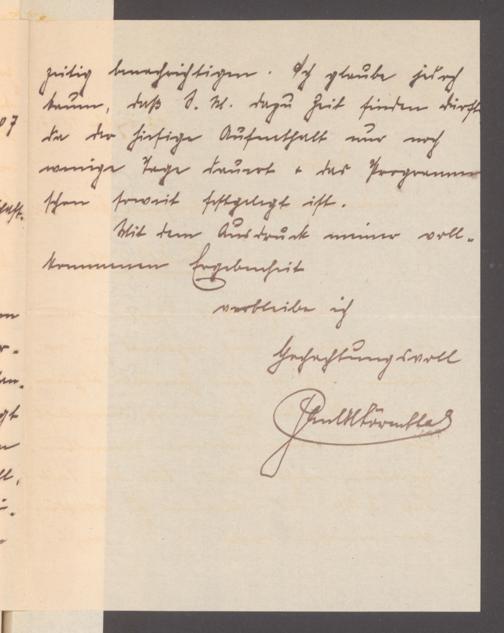 zeitig benachrichtigen. Ich glaube jedoch
kaum, daß S. M. dazu Zeit finden dürfte
da der hiesige Aufenthalt nur noch
wenige Tage dauert + das Programm
schon soweit festgelegt ist.
Mit dem Ausdruck meiner voll-
kommenen Ergebenheit
verbleibe ich
Hochachtungsvoll
07